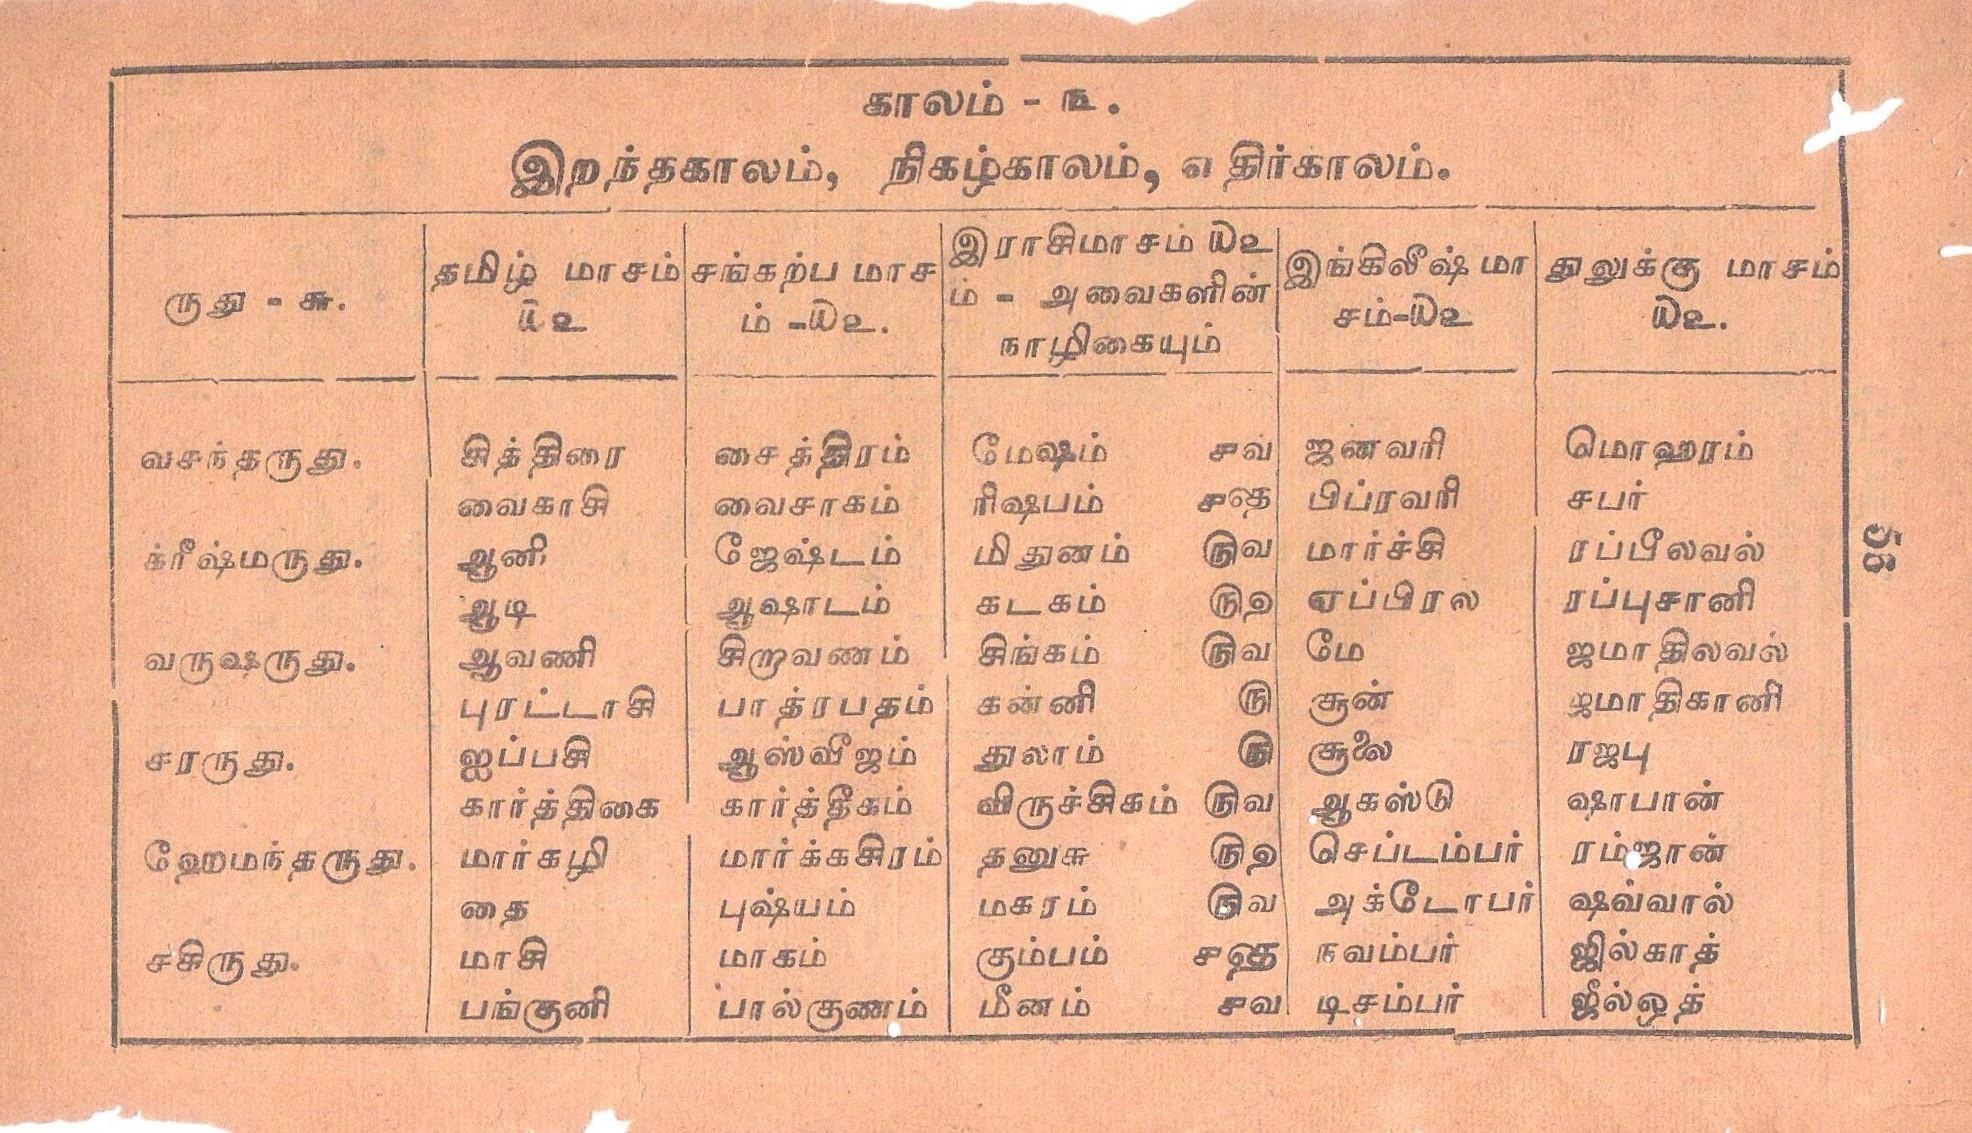 காலம் - ௩.
இறந்தகாலம், நிகழ்காலம், எதிர்காலம்.
ருது - ௬. தமிழ் மாசம் ௰௨ சங்கற்ப மாசம் -௰௨. இராசிமாசம் ௰௨ம் - அவைகளின் நாழிகையும் இங்கிலீஷ் மாசம்-௰௨ துலுக்கு மாசம் ௰௨.
வசந்தருது. சித்திரை சைத்திரம் மேஷம் ௪வ ஜனவரி மொஹரம்
வைகாசி வைசாகம் ரிஷபம் பிப்ரவரி சபர்
க்ரீஷ்மருது. ஆனி ஜேஷ்டம் மிதுனம் ௫வ மார்ச்சி ரப்பீலவல்
ஆடி ஆஷாடம் கடகம் ஏப்பிரல ரப்புசானி
வருஷருது. ஆவணி சிறாவணம் சிங்கம் ௫வ மே ஜமாதிலவல்
புரட்டாசி பாத்ரபதம் கன்னி ௫ சூன் ஜமாதிகானி
சரருது. ஐப்பசி ஆஸ்வீஜம் துலாம் ௫ சூலை ரஜபு
கார்த்திகை கார்த்தீகம் விருச்சிகம் ௫வ ஆகஸ்டு ஷாபான்
ஹேமந்தருது. மார்கழி மார்க்கசிரம் தனுசு செப்டம்பர் ரம்ஜான்
தை புஷ்யம் மகரம் ௫வ அக்டோபர் ஷவ்வால்
சசிருது. மாசி மாகம் கும்பம் நவம்பர் ஜில்காத்
பங்குனி பால்குணம் மீனம் ௪வ டிசம்பர் ஜீல்ஒத்
56